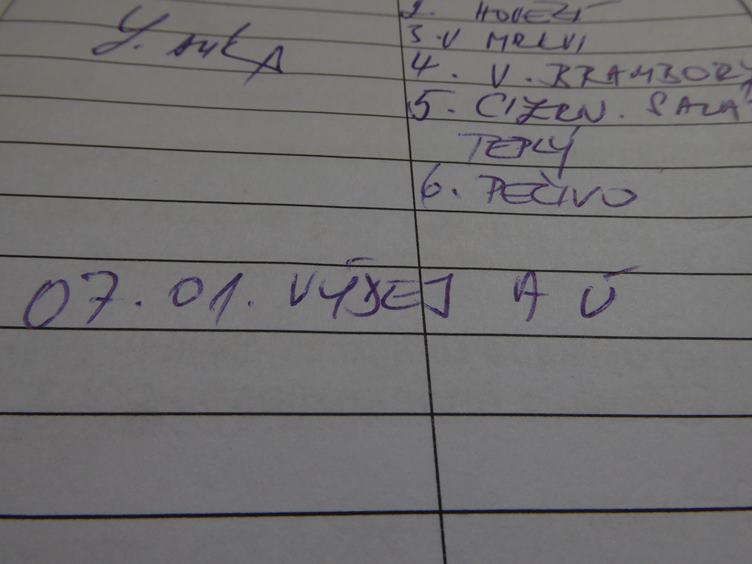 2. HOVĚZÍ
3. V MRKVI
4. V. BRAMBORY
5. CIZRN. SALÁ
TEPLÝ
6. PEČIVO
07.01. VÝDEJ A Ú